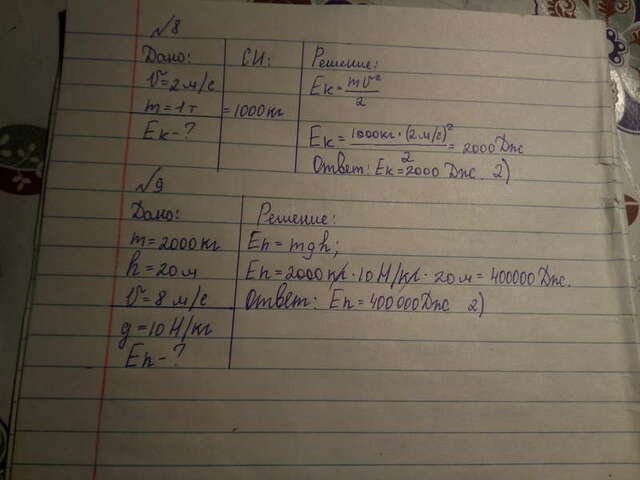 №8
Дано: СИ: Решение:
v=2м/с Eк=mv²/2
m=1т =1000кг
Eк-? Eк=1000кг·(2м/с)²/2=2000Дж
Ответ: Eк=2000 Дж. 2)
№9
Дано: Решение:
m=2000кг Eп=mgh;
h=20м Eп=2000кг·10Н/кг·20м=400000Дж.
v=8м/с Ответ: Eп=400000Дж 2)
g=10Н/кг
Eп-?